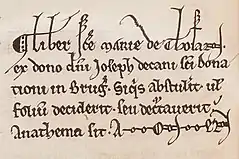 Liber sce marie de
ex dono dni Joseph decani sci dona
tiani in Brug. Siqis abstulit ul
foliu deciderit. seu
Anathema sit. A